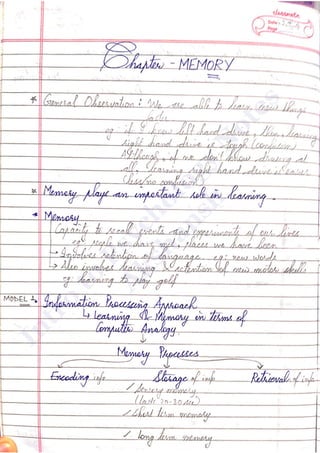 classmate
Date
Page
Chapter - MEMORY
* General Observation : We are able to learn new things
faster
eg if I know left hand drive, then learning
right hand drive is tough (confusion)
Although, if we don't know driving at
all, learning right hand drive is easier
(less/no confusion)
* Memory plays an important role in learning.
* Memory
Capacity to recall events and experiences of our lives
eg: people we have met, places we have been
→ Involves retention of language. eg: new words
→ Also involves learning & retention of new motor skills
eg: learning to play golf
MODEL 1. Information Processing Approach
↳ learning & Memory in terms of
Computer Analogy
Memory Processes
Encoding info Storage of info Retrieval of info
/ Sensory memory
/ Short term memory
/ long term memory